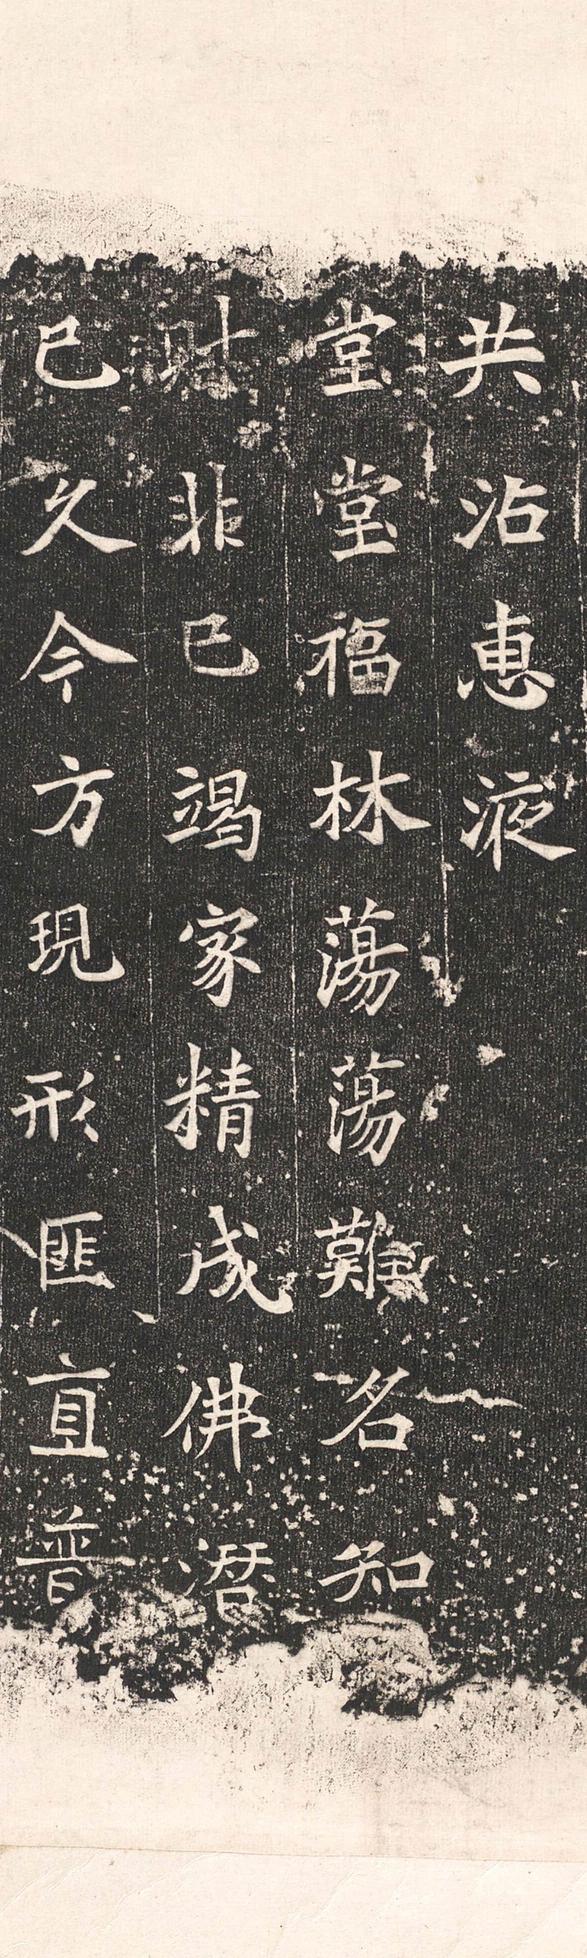 共沾恵液
堂堂福林蕩蕩難名知
財非已竭家精成佛潛
已久今方現形匪直普